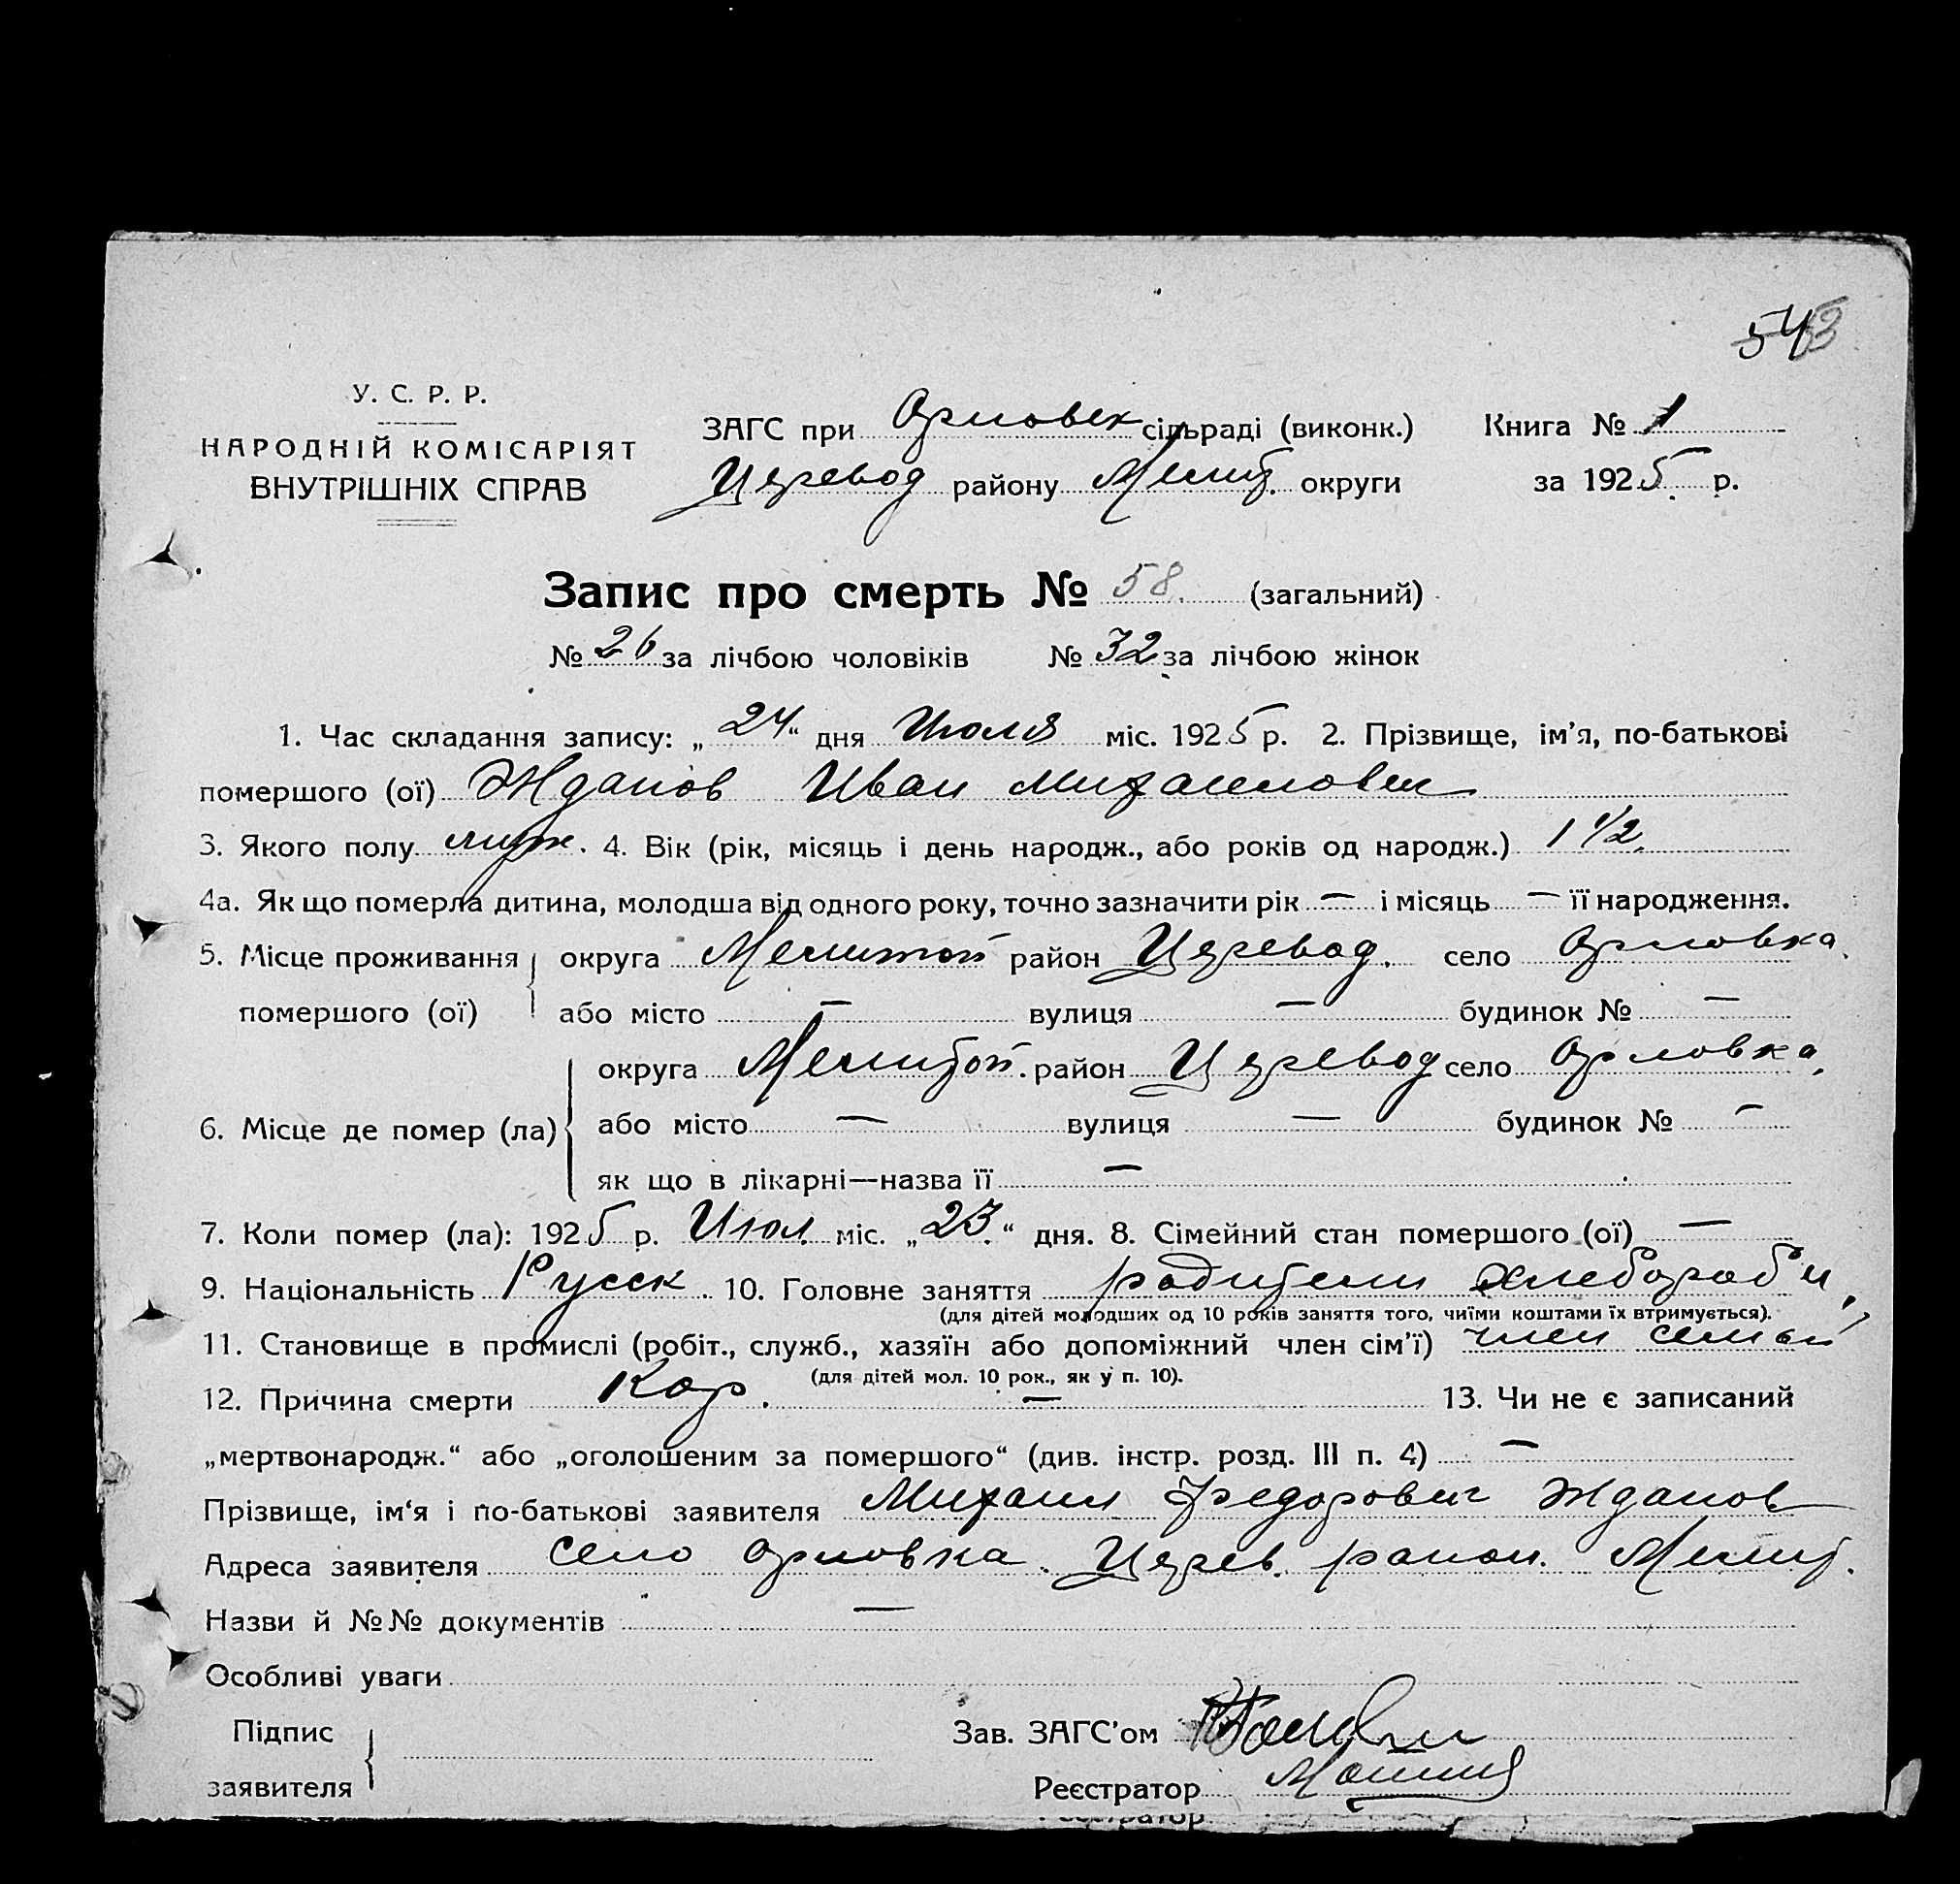 543
У. С. Р. Р.
НАРОДНІЙ КОМІСАРІЯТ
ВНУТРІШНІХ СПРАВ
ЗАГС при Орловск сільраді (виконк.) Книга № 1
Церевод району Мелит. округи за 1925 р.
Запис про смерть № 58. (загальний)
№ 26 за лічбою чоловіків № 32 за лічбою жінок
1. Час складання запису: „24“ дня Июля міс. 1925 р. 2. Прізвище, ім’я, по-батькові
помершого (ої) Жданов Иван Михаилович
3. Якого полу муж. 4. Вік (рік, місяць і день народж., або років од народж.) 1 1/2.
4а. Як що померла дитина, молодша від одного року, точно зазначити рік — і місяць — її народження.
5. Місце проживання округа Мелитоп район Церевод. село Орловка.
помершого (ої) або місто — вулиця — будинок № —
округа Мелитоп. район Церевод село Орловка.
6. Місце де помер (ла) або місто — вулиця — будинок № —
як що в лікарні—назва її —
7. Коли помер (ла): 1925 р. Июл міс. „23.“ дня. 8. Сімейний стан помершого (ої) —
9. Національність Русск. 10. Головне заняття родители хлеборобы,
(для дітей молодших од 10 років заняття того, чиїми коштами їх втримується).
11. Становище в промислі (робіт., служб., хазяїн або допоміжний член сім’ї) член семьи
(для дітей мол. 10 рок., як у п. 10).
12. Причина смерти Кор. — 13. Чи не є записаний
„мертвонародж.“ або „оголошеним за помершого“ (див. інстр. розд. III п. 4) —
Прізвище, ім‘я і по-батькові заявителя Михаил Федорович Жданов
Адреса заявителя село Орловка. Церев. район. Мелит.
Назви й №№ документів —
Особливі уваги
Підпис
заявителя
Зав. ЗАГС’ом
Реєстратор
Реєстратор